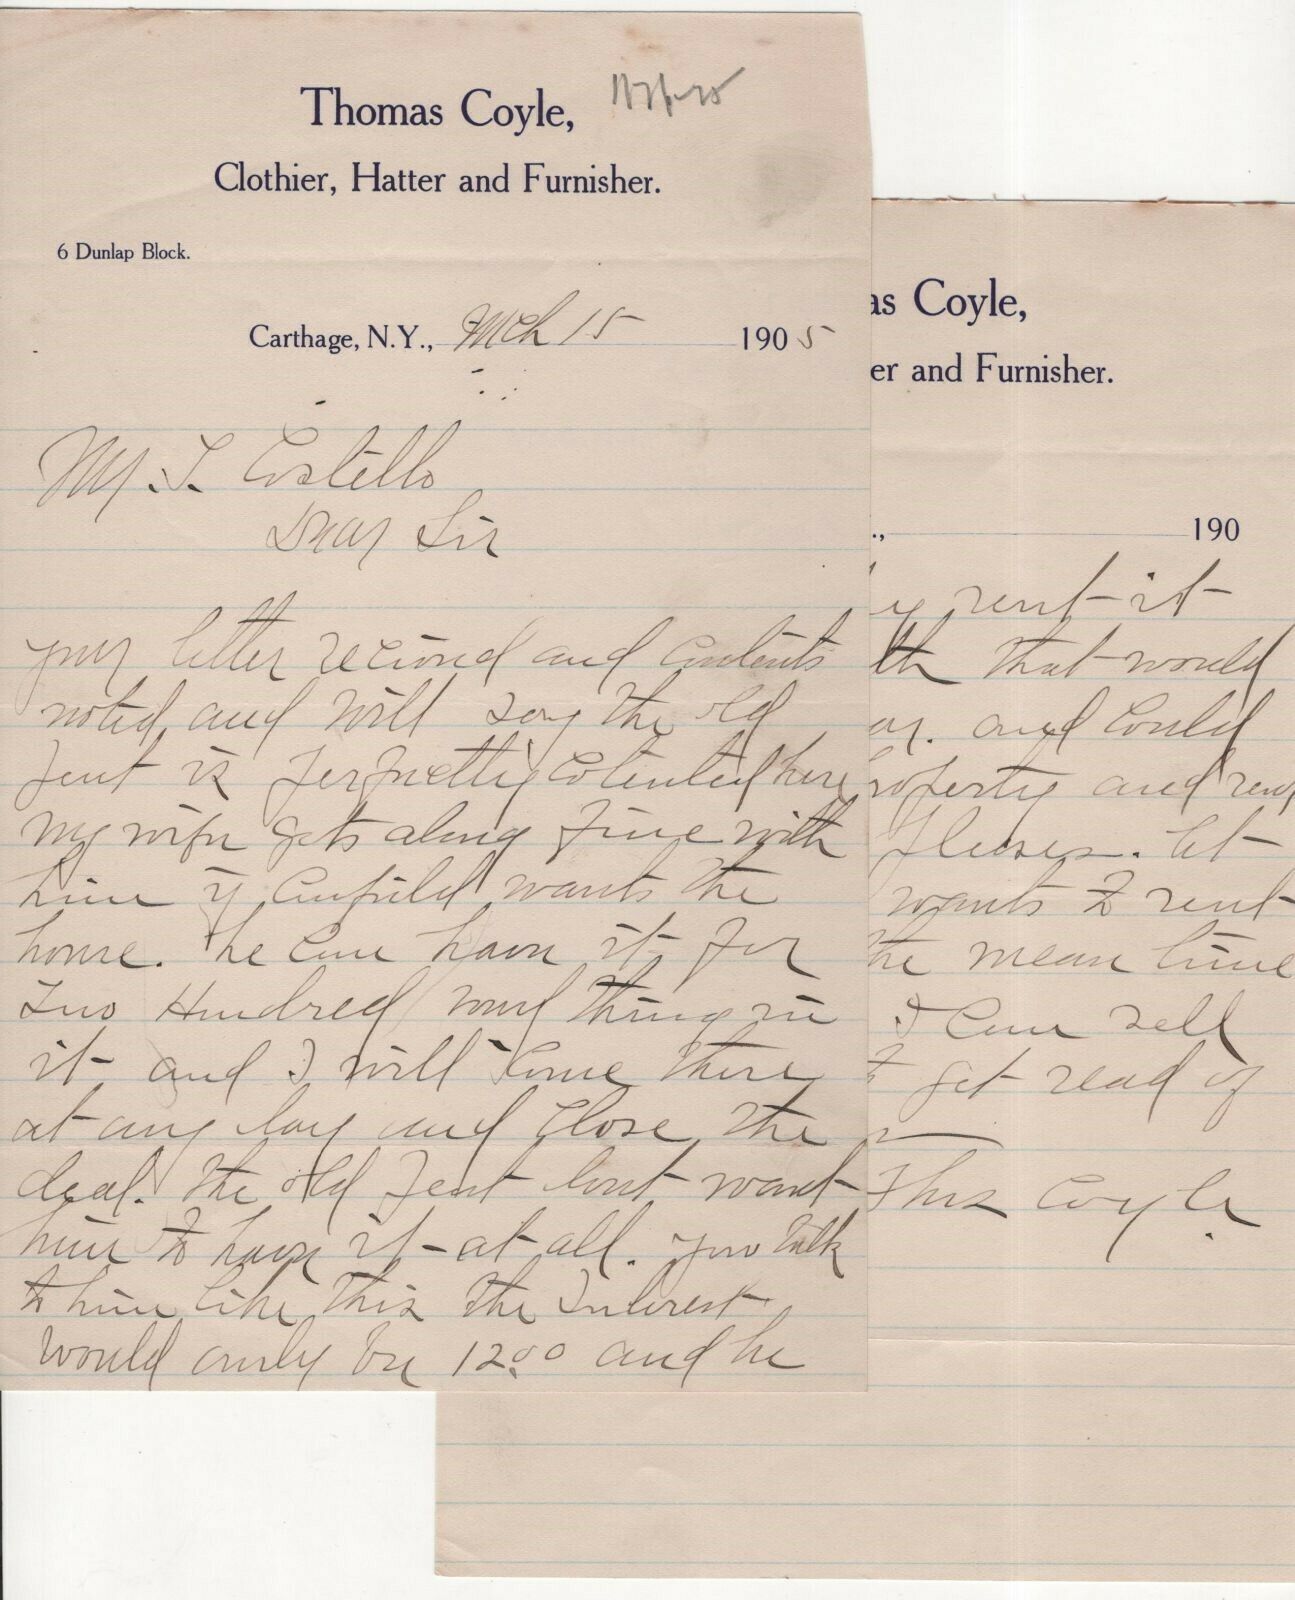 Thomas Coyle,
Clothier, Hatter and Furnisher.
6 Dunlap Block.
Carthage, N.Y., Mch 15 1905
Mr. T. Costello
Dear Sir
your letter recived and contents
noted, and will say the old
gent is perfectly cotented here
My wife gets along fine with
him if Canfield wants the
house. he can have it for
Two Hundred and things in
it and I will Come there
at any day and Close the
deal. the old gent dont want
him to have it at all. you talk
to him like this the Interest
would only be 12.00 and he
as Coyle,
er and Furnisher.
., 190
y rent it
th that would
ar. and Could
roperty and rent
pleases. let
wants to rent
the mean time
I Can sell
to get read of
Thos Coyle.